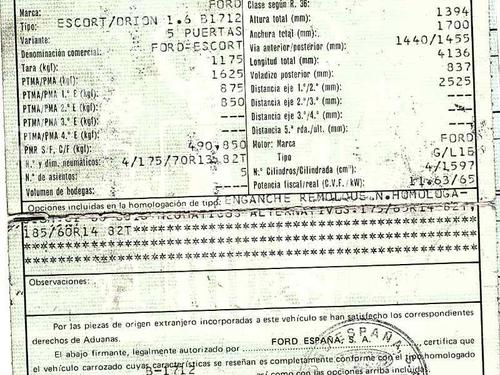 Marca: FORD
Tipo: ESCORT/ORION 1.6 B1712
Variante: 5 PUERTAS
Denominación comercial: FORD-ESCORT
Tara (kgf): 1175
PTMA/PMA (kgf): 1625
PTMA/PMA 1.º E (kgf): 875
PTMA/PMA 2.º E (kgf): 850
PTMA/PMA 3.º E (kgf): ---
PTMA/PMA 4.º E (kgf): ---
PMR S/F, C/F (kgf): 490,850
N.º y dim. neumáticos: 4/175/70R13 82T
N.º de asientos: 5
Volumen de bodegas: ---
Clase según R. 36: ---
Altura total (mm): 1394
Anchura total (mm): 1700
Vía anterior/posterior (mm): 1440/1455
Longitud total (mm): 4136
Voladizo posterior (mm): 837
Distancia eje 1.º/2.º (mm): 2525
Distancia eje 2.º/3.º (mm): ---
Distancia eje 3.º/4.º (mm): ---
Distancia 5.ª rda./ult. (mm): ---
Motor: Marca FORD
Tipo G/L1B
N.º Cilindros/Cilindrada (cm³): 4/1597
Potencia fiscal/real (C.V.F./kW): 11.63/65
Opciones incluidas en la homologación de tipo: ENGANCHE REMOLQUES N.HOMOLOGA-
NEUMATICOS ALTERNATIVOS:175/65R14 82T,
185/60R14 82T
Observaciones:
Por las piezas de origen extranjero incorporadas a este vehículo se han satisfecho los correspondientes
derechos de Aduanas.
El abajo firmante, legalmente autorizado por FORD ESPAÑA, S. A. certifica que
el vehículo carrozado cuyas características se reseñan es completamente conforme con el tipo homologado
B-1712 así como con las opciones arriba indicadas.
ESPAÑA